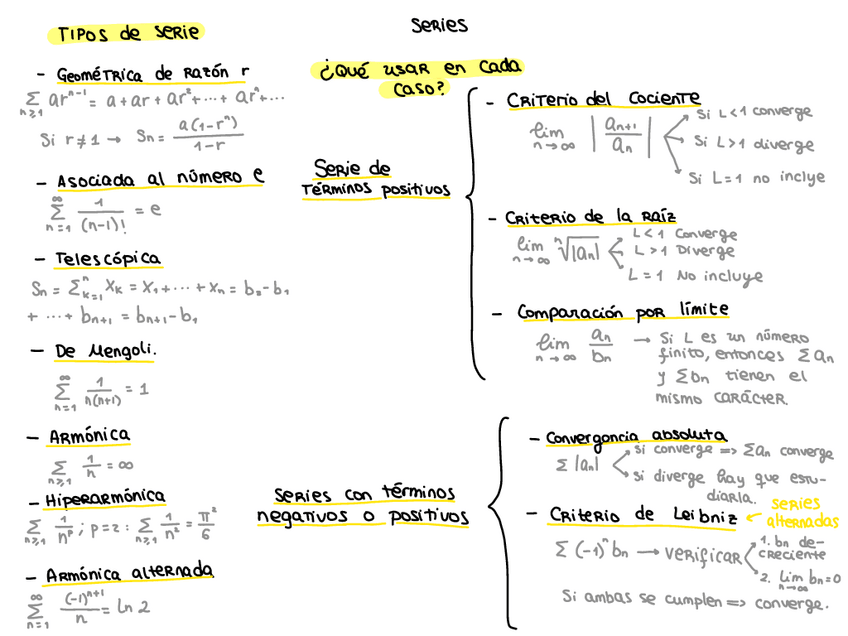 Series
TIPOS de SERIE
- Geométrica de Razón r
∑ₙ≥₁ arⁿ⁻¹ = a + ar + ar² + ⋯ + arⁿ + ⋯
Si r ≠ 1 → Sₙ = a(1-rⁿ) / 1-r
- Asociada al número e
∑ₙ₌₁^∞ 1/(n-1)! = e
- Telescópica
Sₙ = ∑ₖ₌₁ⁿ Xₖ = X₁ + ⋯ + Xₙ = b₂ - b₁
+ ⋯ + bₙ₊₁ = bₙ₊₁ - b₁
- De Mengoli.
∑ₙ₌₁^∞ 1/n(n+1) = 1
- Armónica
∑ₙ≥₁ 1/n = ∞
- Hiperarmónica
∑ₙ≥₁ 1/nᵖ ; p=2 : ∑ₙ≥₁ 1/n² = π²/6
- Armónica alternada
∑ₙ₌₁^∞ (-1)ⁿ⁺¹/n = ln 2
¿Qué usar en cada
caso?
Serie de
términos positivos
- Criterio del Cociente
lim n→∞ |aₙ₊₁/aₙ|
Si L < 1 converge
Si L > 1 diverge
Si L = 1 no inclye
- Criterio de la raíz
lim n→∞ ⁿ√|aₙ|
L < 1 Converge
L > 1 Diverge
L = 1 No incluye
- Comparación por límite
lim n→∞ aₙ/bₙ → Si L es un número
finito, entonces ∑aₙ
y ∑bₙ tienen el
mismo carácter.
Series con términos
negativos o positivos
- Convergencia absoluta
∑|aₙ|
si converge => ∑aₙ converge
si diverge hay que estu-
diarla.
- Criterio de Leibniz ← series
alternadas
∑ (-1)ⁿ bₙ → verificar
1. bₙ de-
creciente
2. lim n→∞ bₙ = 0
Si ambas se cumplen => converge.